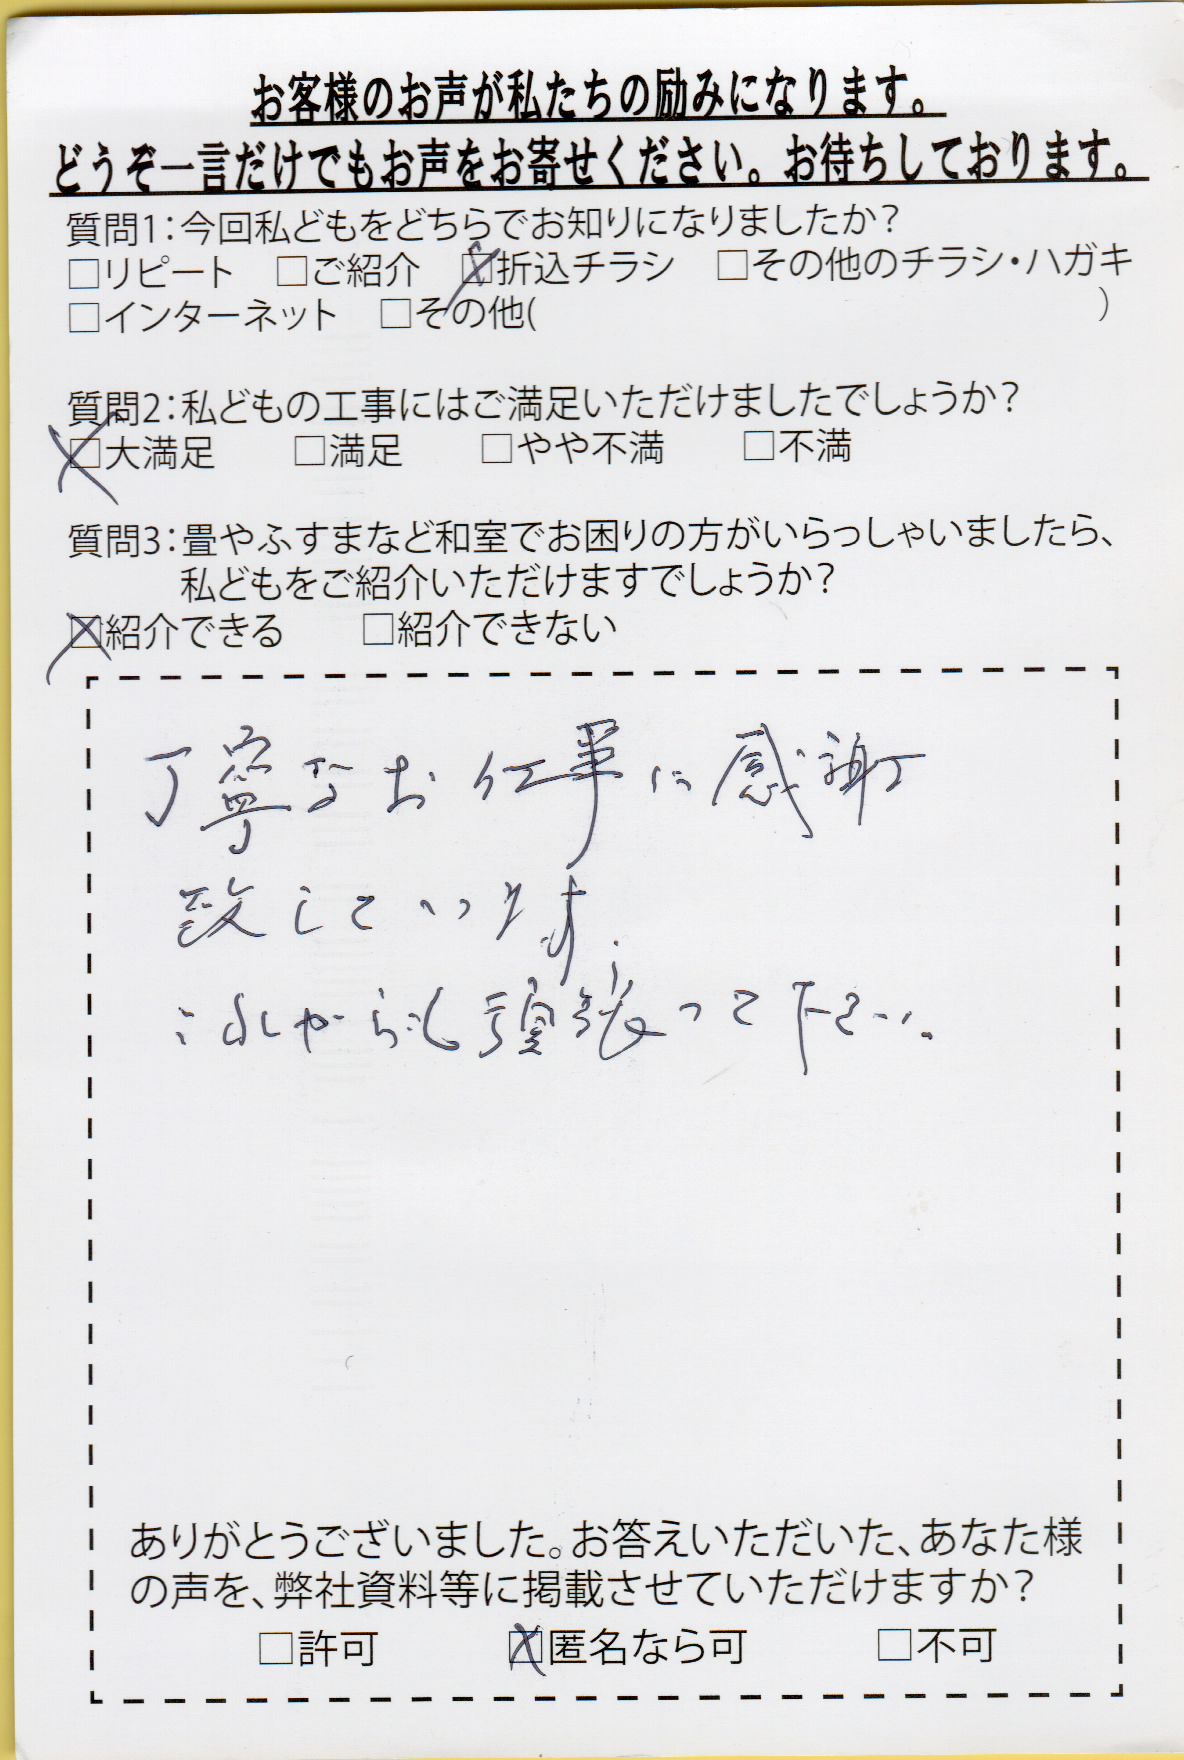 お客様のお声が私たちの励みになります。
どうぞ一言だけでもお声をお寄せください。お待ちしております。
質問1:今回私どもをどちらでお知りになりましたか?
□リピート □ご紹介 ☒折込チラシ □その他のチラシ・ハガキ
□インターネット □その他( )
質問2:私どもの工事にはご満足いただけましたでしょうか?
☒大満足 □満足 □やや不満 □不満
質問3:畳やふすまなど和室でお困りの方がいらっしゃいましたら、
私どもをご紹介いただけますでしょうか?
☒紹介できる □紹介できない
丁寧なお仕事に感謝
致しています。
これからも頑張って下さい。
ありがとうございました。お答えいただいた、あなた様
の声を、弊社資料等に掲載させていただけますか?
□許可 ☒匿名なら可 □不可